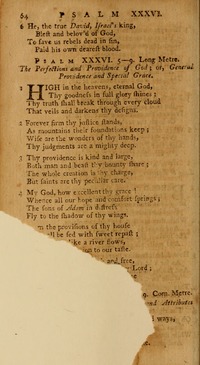 64 PSALM XXXVI.
6 He, the true David, Israel's king,
Blest and belov'd of God,
To save us rebels dead in sin,
Paid his own dearest blood.
PSALM XXXVI. 5—9. Long Metre.
The Perfections and Providence of God; or, General
Providence and Special Grace.
1 HIGH in the heavens, eternal God,
Thy goodness in full glory shines;
Thy truth shall break through every cloud
That veils and darkens thy designs.
2 Forever firm thy justice stands,
As mountains their foundations keep;
Wise are the wonders of thy hands,
Thy judgments are a mighty deep.
3 Thy providence is kind and large,
Both man and beast thy bounty share;
The whole creation is thy charge,
But saints are thy peculiar care.
4 My God, how excellent thy grace!
Whence all our hope and comfort springs;
The sons of Adam in distress
Fly to the shadow of thy wings.
the provisions of thy house
be fed with sweet repast;
like a river flows,
to our taste.
and free,
Lord;
9. Com. Metre.
and Attributes
ways,